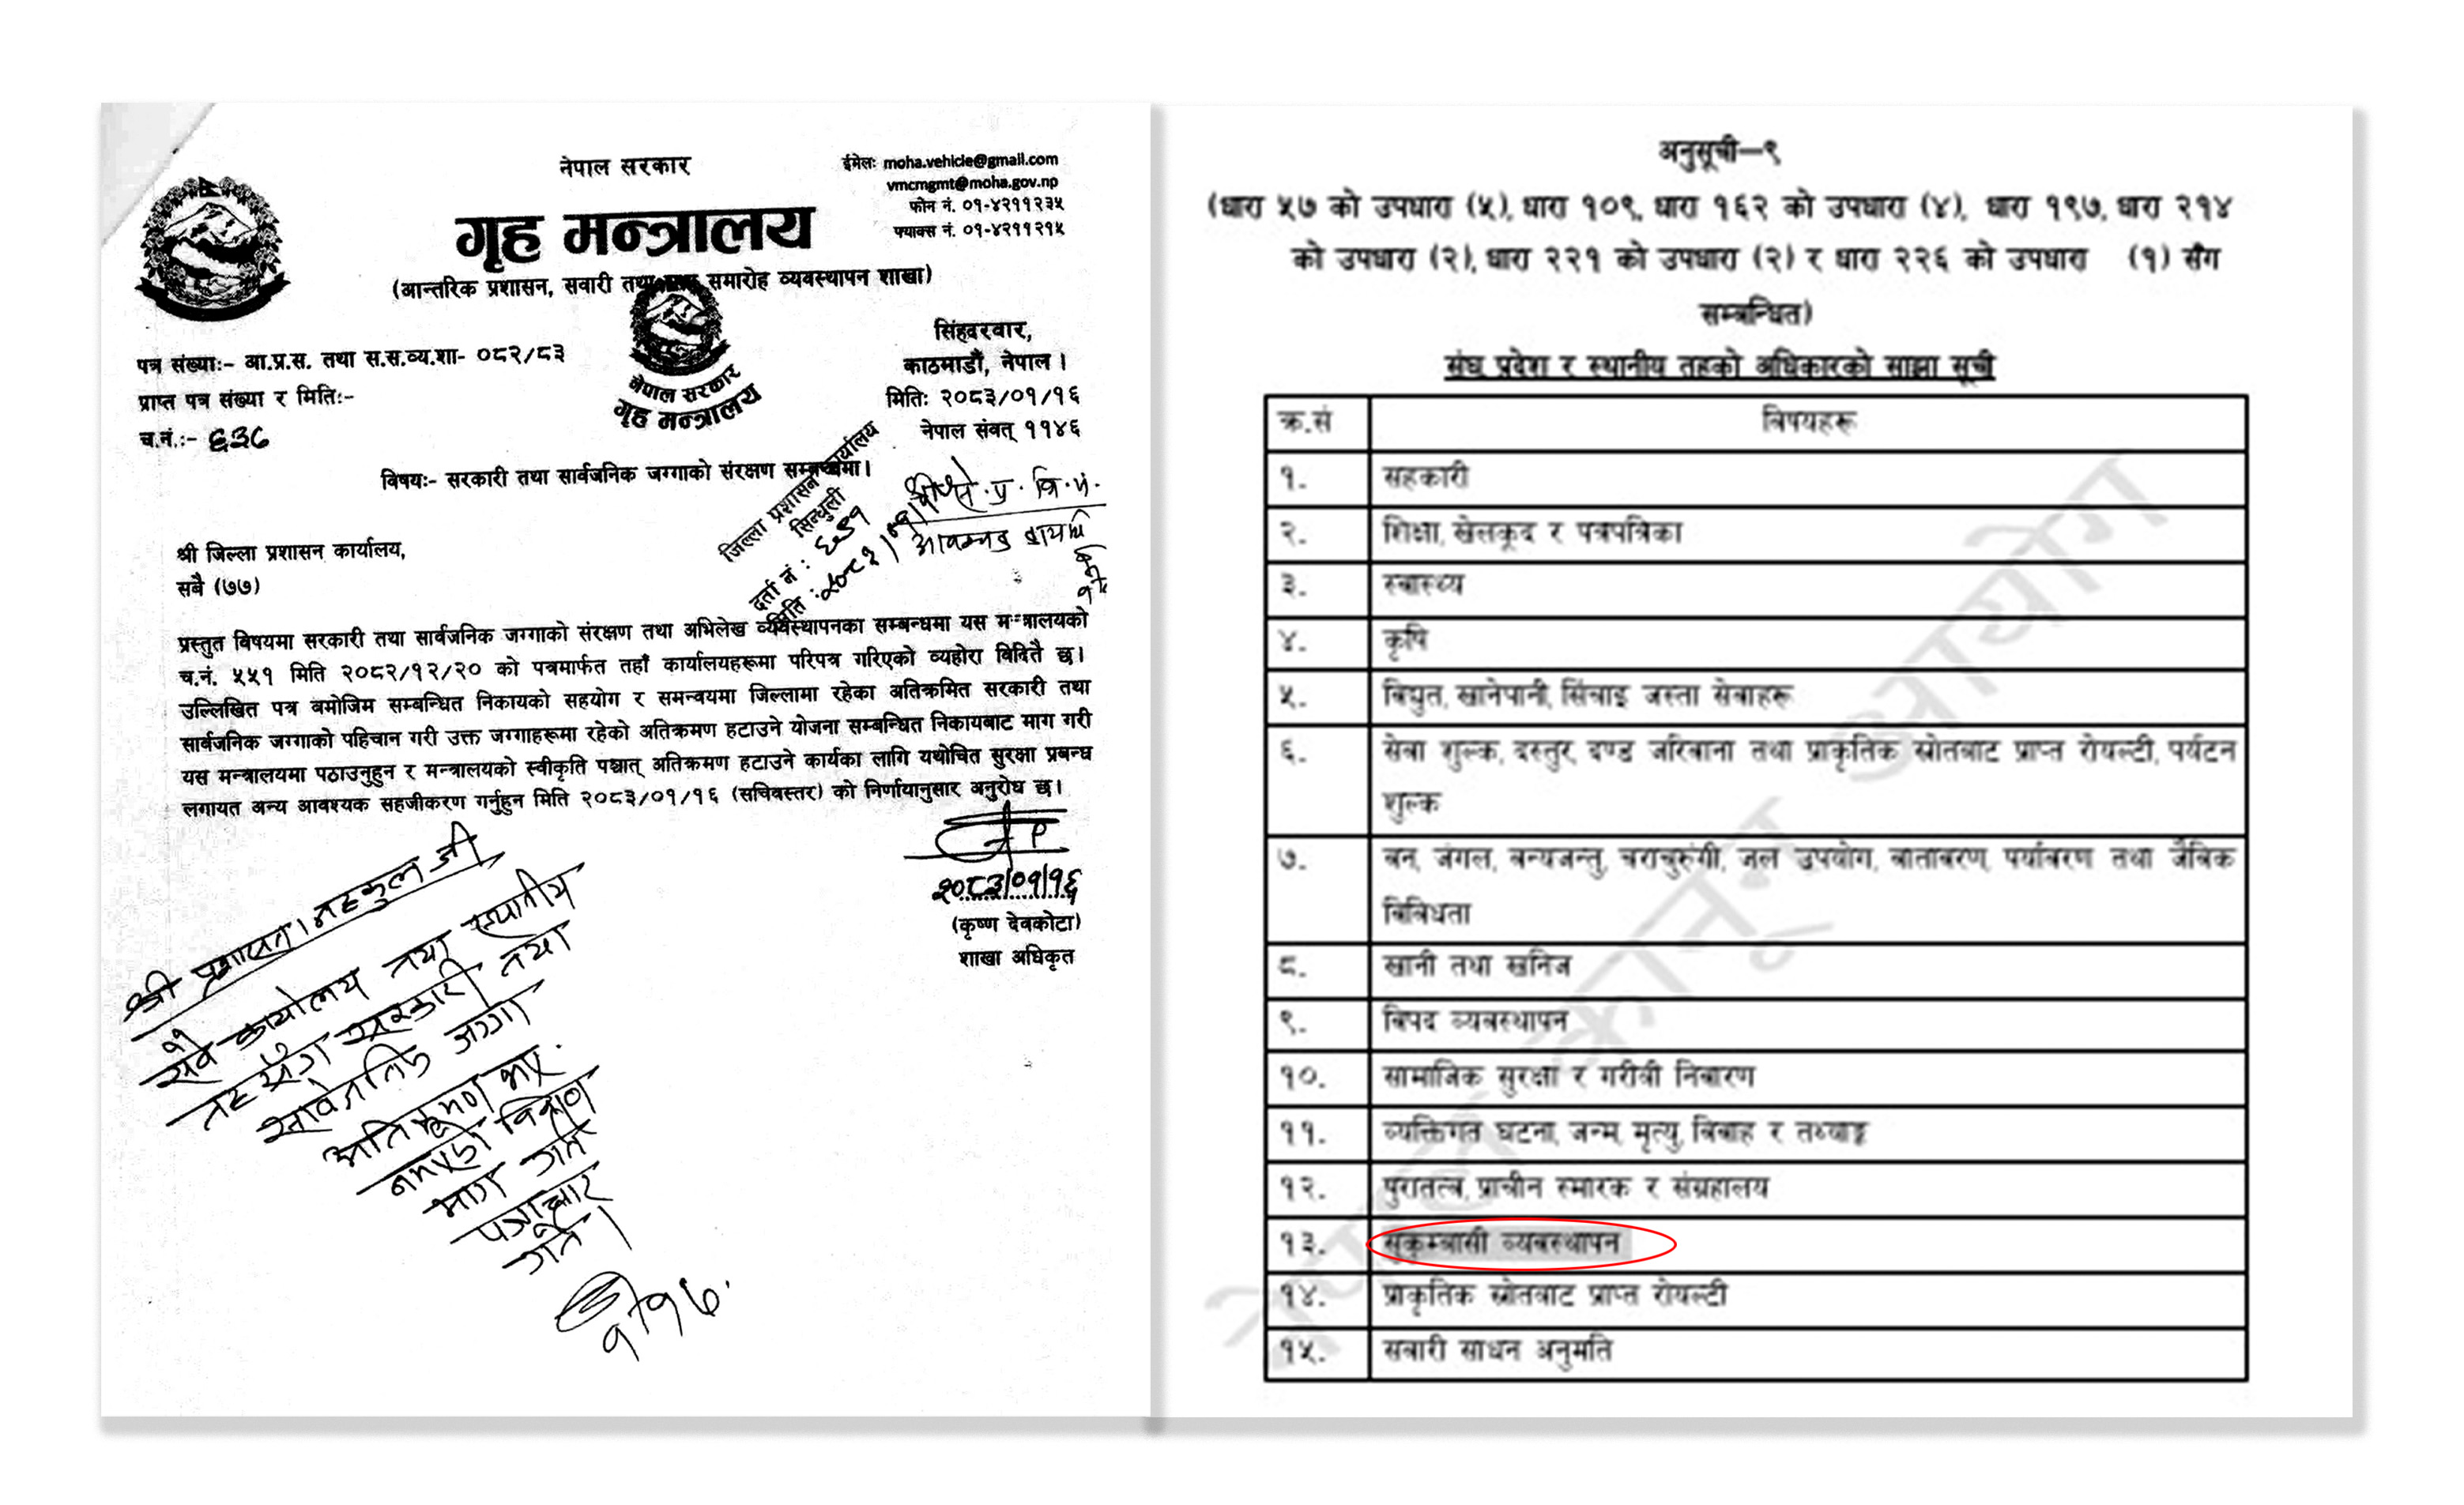 नेपाल सरकार
गृह मन्त्रालय
(आन्तरिक प्रशासन, सवारी तथा समारोह व्यवस्थापन शाखा)
ईमेलः moha.vehicle@gmail.com
vmcmgmt@moha.gov.np
फोन नं. ०१-४२११२३५
फ्याक्स नं. ०१-४२११२१५
सिंहदरवार,
काठमाडौं, नेपाल ।
पत्र संख्याः- आ.प्र.स. तथा स.स.व्य.शा- ०८२/८३
प्राप्त पत्र संख्या र मितिः-
च.नं.:- ६३६
नेपाल सरकार
गृह मन्त्रालय
मितिः २०८३/०१/१६
नेपाल संवत् ११४६
विषयः- सरकारी तथा सार्वजनिक जग्गाको संरक्षण सम्बन्धमा।
जिल्ला प्रशासन कार्यालय
सिन्धुली
दर्ता नं :
मिति :
श्री जिल्ला प्रशासन कार्यालय,
सबै (७७)
प्रस्तुत विषयमा सरकारी तथा सार्वजनिक जग्गाको संरक्षण तथा अभिलेख व्यवस्थापनका सम्बन्धमा यस मन्त्रालयको
च.नं. ५५१ मिति २०८२/१२/२० को पत्रमार्फत तहाँ कार्यालयहरूमा परिपत्र गरिएको व्यहोरा विदितै छ।
उल्लिखित पत्र बमोजिम सम्बन्धित निकायको सहयोग र समन्वयमा जिल्लामा रहेका अतिक्रमित सरकारी तथा
सार्वजनिक जग्गाको पहिचान गरी उक्त जग्गाहरूमा रहेको अतिक्रमण हटाउने योजना सम्बन्धित निकायबाट माग गरी
यस मन्त्रालयमा पठाउनुहुन र मन्त्रालयको स्वीकृति पश्चात् अतिक्रमण हटाउने कार्यका लागि यथोचित सुरक्षा प्रबन्ध
लगायत अन्य आवश्यक सहजीकरण गर्नुहुन मिति २०८३/०१/१६ (सचिवस्तर) को निर्णयानुसार अनुरोध छ।
२०८३/०१/१६
(कृष्ण देवकोटा)
शाखा अधिकृत
श्री प्रशासन। नहकुल जी
सबै कार्यालय तथा स्थानीय
तह सँग सरकारी तथा
सार्वजनिक जग्गा
अतिक्रमण भए
नभएको विवरण
माग गर्ने
पत्राचार
गर्ने।
१/१७
अनुसूची–९
(धारा ५७ को उपधारा (५), धारा १०९, धारा १६२ को उपधारा (४), धारा १९७, धारा २१४
को उपधारा (२), धारा २२१ को उपधारा (२) र धारा २२६ को उपधारा (१) सँग
सम्बन्धित)
संघ प्रदेश र स्थानीय तहको अधिकारको साझा सूची
क्र.सं विषयहरू
१. सहकारी
२. शिक्षा, खेलकूद र पत्रपत्रिका
३. स्वास्थ्य
४. कृषि
५. विद्युत, खानेपानी, सिंचाइ जस्ता सेवाहरू
६. सेवा शुल्क, दस्तुर, दण्ड जरिवाना तथा प्राकृतिक स्रोतबाट प्राप्त रोयल्टी, पर्यटन
शुल्क
७. वन, जंगल, वन्यजन्तु, चराचुरुंगी, जल उपयोग, वातावरण, पर्यावरण तथा जैविक
विविधता
८. खानी तथा खनिज
९. विपद व्यवस्थापन
१०. सामाजिक सुरक्षा र गरीवी निवारण
११. व्यक्तिगत घटना, जन्म, मृत्यु, विवाह र तथ्याङ्क
१२. पुरातत्व, प्राचीन स्मारक र संग्रहालय
१३. सुकुम्वासी व्यवस्थापन
१४. प्राकृतिक स्रोतबाट प्राप्त रोयल्टी
१५. सवारी साधन अनुमति
नेपाल कानून आयोग